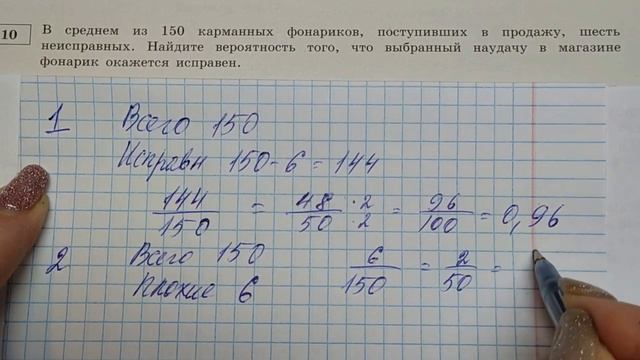 10
В среднем из 150 карманных фонариков, поступивших в продажу, шесть
неисправных. Найдите вероятность того, что выбранный наудачу в магазине
фонарик окажется исправен.
1 Всего 150
Исправн 150-6=144
144/150 = 48·2/50·2 = 96/100 = 0,96
2 Всего 150
Плохие 6
6/150 = 2/50 =